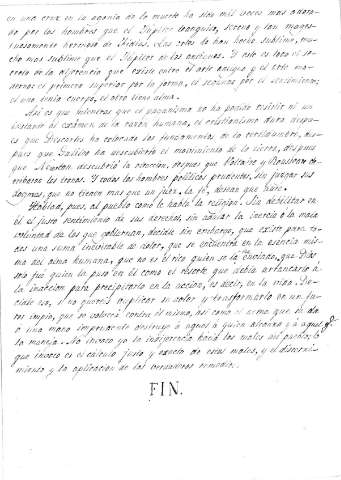 en una cruz en la agonía de la muerte ha sido mil veces mas adora-
do por los hombres que el Júpiter tranquilo, sereno y tan mages-
tuosamente hermoso de Fidias. Las artes lo han hecho sublime, mu-
cho mas sublime que el Júpiter de los antiguos. Y este es todo el se-
creto de la diferencia que existe entre el arte antiguo y el arte mo-
derno: el primero superior por la forma, el segundo por el sentimiento;
el uno tenia cuerpo, el otro tiene alma.
Asi es que mientras que el paganismo no ha podido resistir ni un
instante de exámen de la razon humana, el cristianismo dura despu-
es que Descartes ha colocado los fundamentos en la certidumbre, des-
pues que Galileo ha descubierto el movimiento de la tierra, despues
que Newton descubrió la atraccion, despues que Voltaire y Rousseau de-
rribaron los tronos. Y todos los hombres políticos prudentes, sin juzgar sus
dogmas, que no tienen mas que un juez, la fé, desean que dure.
Hablad, pues, al pueblo como le habla la religion. Sin debilitar en
él el justo sentimiento de sus derechos, sin adular la inercia o la mala
voluntad de los que gobiernan, decidle sin embargo, que existe para to-
dos una suma inevitable de dolor, que se encuentra en la esencia mis-
ma del alma humana, que no es el rico quien se la ha enviado, que Dios
solo fué quien la puso en él como el resorte que debia arrancarlo a
la inaccion para precipitarlo en la accion, es decir, en la vida. De-
cidle eso, si no quereis duplicar su dolor y trasformarlo en un fu-
ror impio, que se volveria contra él mismo, asi como el arma que se da
a una mano imprudente destruye á aquel á quien alcanza y á aquel q.e
la maneja. No invoco yo la indiferencia hacia los males del pueblo; lo
que invoco es el cálculo justo y exacto de esos males, y el discerni-
miento y la aplicacion de los verdaderos remedios.
FIN.